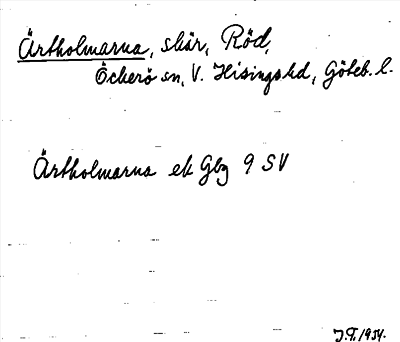 Ärtholmarna, skär, Röd,
Öckerö sn, V. Hisings hd, Göteb. l.
Ärtholmarna ek Gbg 9 SV
J.T. 1934.